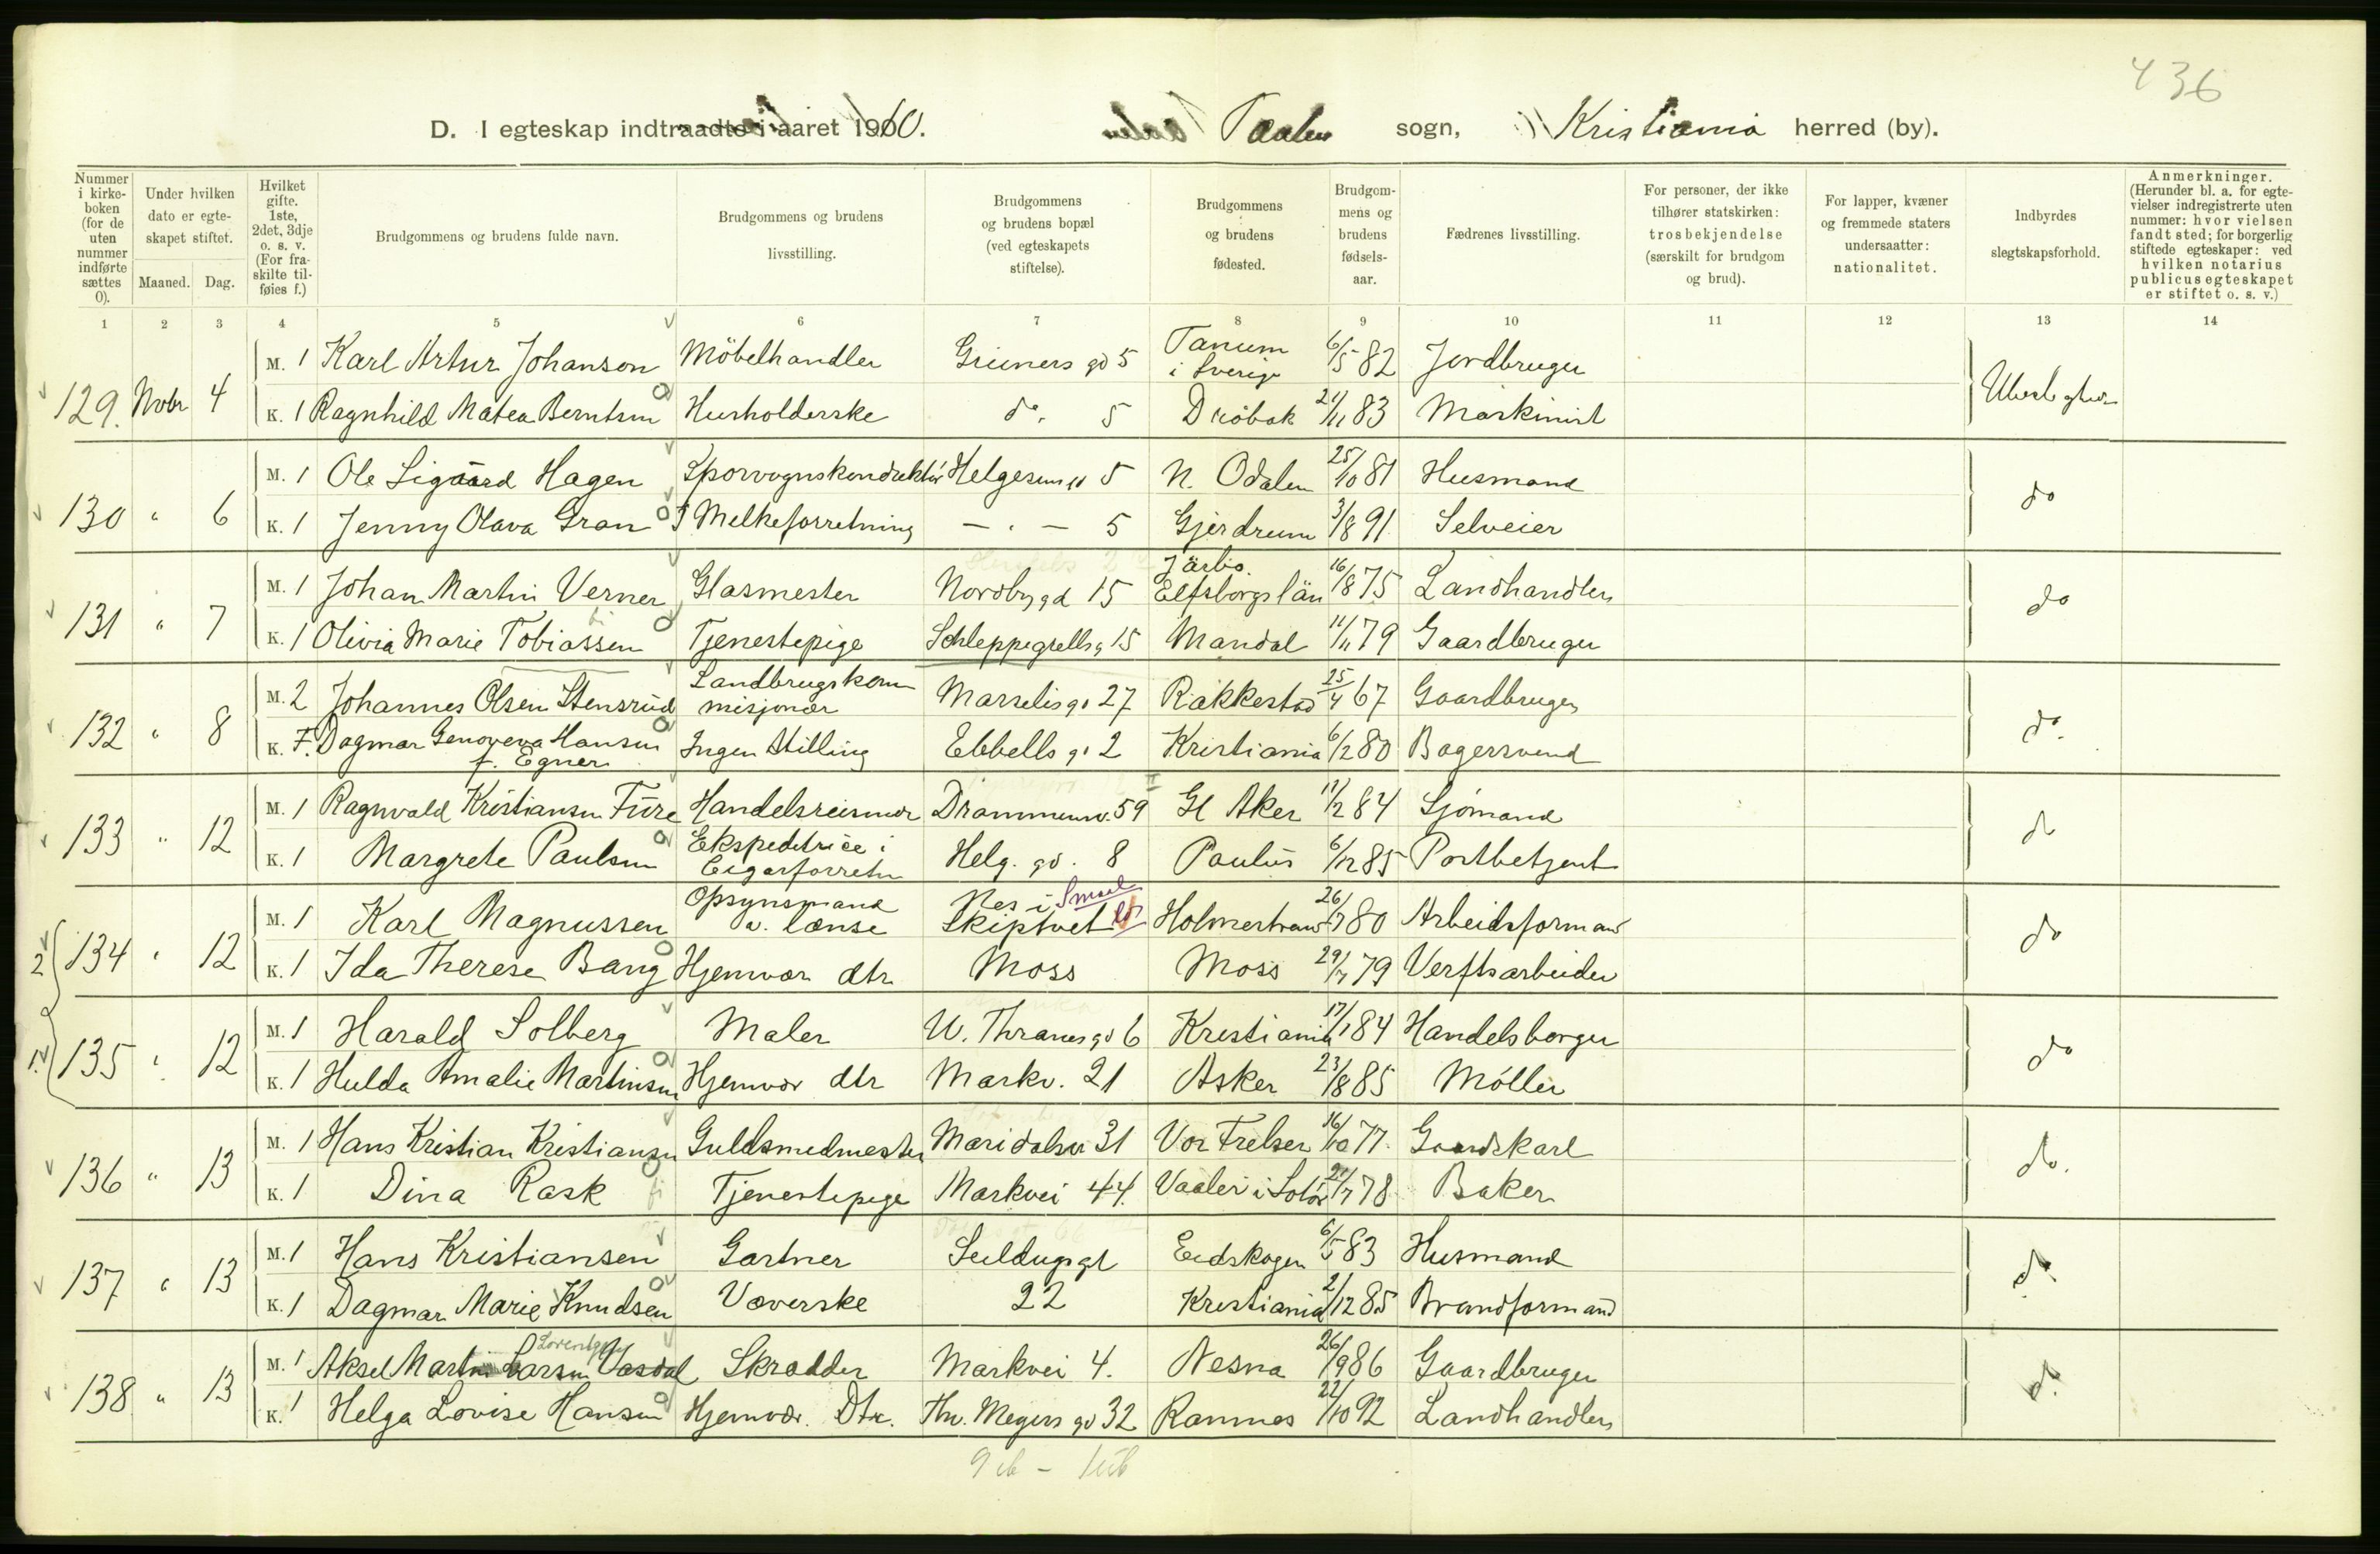 436
D. I egteskap indtraadte i aaret 1910. Paulus sogn, Kristiania herred (by).
Nummer i kirke-boken (for de uten nummer indførte sættes 0).
Under hvilken dato er egte-skapet stiftet.
Maaned. Dag.
Hvilket gifte. 1ste, 2det, 3dje o. s. v. (For fra-skilte til-føies f.)
Brudgommens og brudens fulde navn.
Brudgommens og brudens livsstilling.
Brudgommens og brudens bopæl (ved egteskapets stiftelse).
Brudgommens og brudens fødested.
Brudgom-mens og brudens fødsels-aar.
Fædrenes livsstilling.
For personer, der ikke tilhører statskirken: trosbekjendelse (særskilt for brudgom og brud).
For lapper, kvæner og fremmede staters undersaatter: nationalitet.
Indbyrdes slegtskapsforhold.
Anmerkninger. (Herunder bl. a. for egte-vielser indregistrerte uten nummer: hvor vielsen fandt sted; for borgerlig stiftede egteskaper: ved hvilken notarius publicus egteskapet er stiftet o. s. v.)
1 2 3 4 5 6 7 8 9 10 11 12 13 14
129. Novbr 4 M. 1 Karl Artur Johanson Möbelhandler Grüners gd 5 Tanum i Sverige 6/5 82 Jordbruger
K. 1 Ragnhild Matea Berntsen Husholderske do. 5 Dröbak 21/11 83 Maskinist
130 " 6 M. 1 Ole Sigaard Hagen Sporvognskonduktör Helgesens gd 5 N. Odalen 25/10 81 Husmand do
K. 1 Jenny Olava Gran I Melkeforretning — . — 5 Gjerdrum 3/8 91 Selveier
131 " 7 M. 1 Johan Martin Verner Glasmester Nordbygd 15 Järbo. Elfsborgs län 16/8 75 Landhandler do
K. 1 Olivia Marie Tobiassen Tjenestepige Schleppegrellsg 15 Mandal 11/11 79 Gaardbruger
132 " 8 M. 2 Johannes Olsen Stensrud Landbrugskommisjonær Marselisgd 27 Rakkestad 25/4 67 Gaardbruger do.
K. F. Dagmar Genoveva Hansen f. Egner Ingen Stilling Ebbells gd 2 Kristiania 6/2 80 Bagersvend
133 " 12 M. 1 Ragnvald Kristiansen Fure Handelsreisende Drammensv. 59 Gl Aker 17/2 84 Sjömand do
K. 1 Margrete Paulsen Ekspeditrice i Cigarforretn Helg. gd. 8 Paulus 6/12 85 Postbetjent
134 " 12 M. 1 Karl Magnussen Opsynsmand v. lænse Nes i Skiptvet Smaal Holmestrand 26/7 80 Arbeidsformand do
K. 1 Ida Therese Bang Hjemvær dtr. Moss Moss 29/7 79 Verftsarbeider
135 " 12 M. 1 Harald Solberg Maler W. Thranes gd 6 Kristiania 17/1 84 Handelsborger do
K. 1 Hulda Amalie Martinsen Hjemvær dtr Markv. 21 Asker 23/8 85 Möller
136 " 13 M. 1 Hans Kristian Kristiansen Guldsmedmester Maridalsv 31 Vor Frelser 16/10 77 Gaardskarl do.
K. 1 Dina Rask Tjenestepige Markvei 44. Vaaler i Solör 21/7 78 Baker
137 " 13 M. 1 Hans Kristiansen Gartner Seildugsgt 22 Eidskogen 6/5 83 Husmand do.
K. 1 Dagmar Marie Knudsen Væverske Kristiania 2/12 85 Brandformand
138 " 13 M. 1 Aksel Martin Larsen Vasdal Skrædder Markvei 4. Nesna 26/9 86 Gaardbruger do.
K. 1 Helga Lovise Hansen Hjemvær. Dtr. Thv. Meyers gd 32 Ramnes 22/10 92 Landhandler